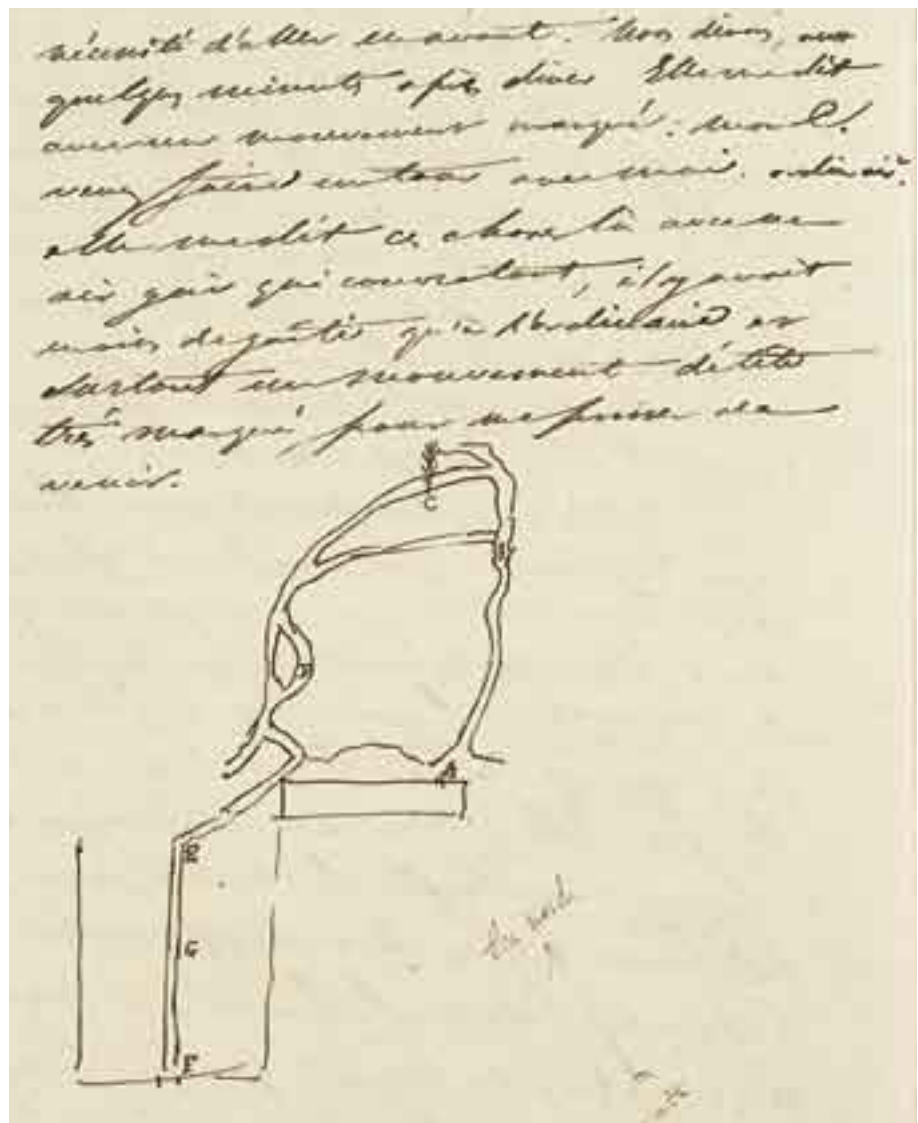 nécessité d'aller en avant. Nous dinons,
quelques minutes après diner Elle me dit
avec un mouvement marqué: mon C.
venez faire un tour avec moi. ordinair.t
elle me dit ces choses là avec un
air gai qui couvre tout, il y avait
moins de gaîté qu'à l'ordinaire et
surtout un mouvement de tête
très marqué, pour me presser de
venir.
C
A
G
F